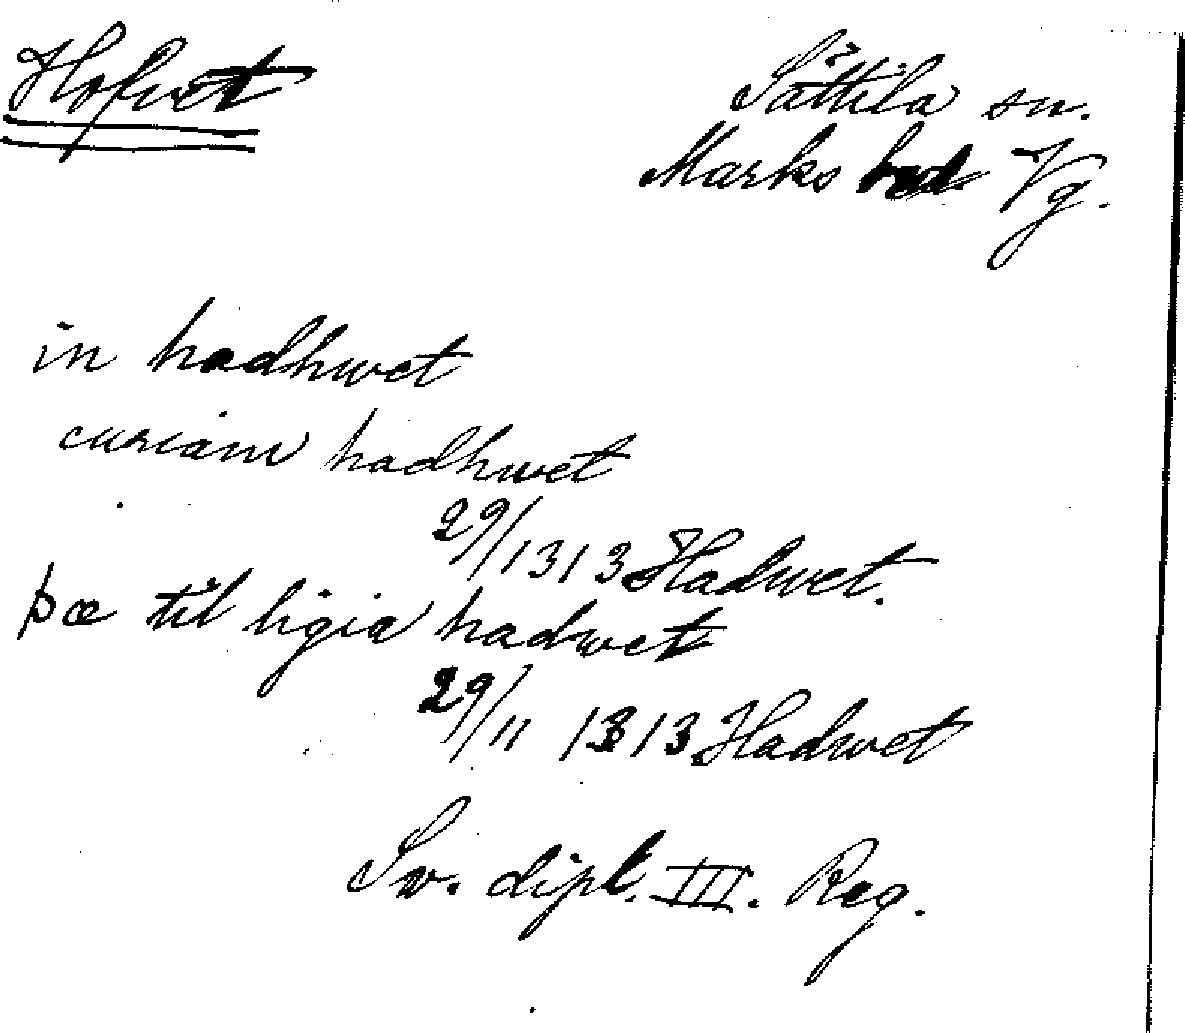 Hofvet
Sätila sn.
Marks hd Vg.
in hadhwet
curiam hadhwet
29/1313 Hadwet.
þæ til ligia hadwet
29/11 1313 Hadwet
Sv. dipl. III. Reg.